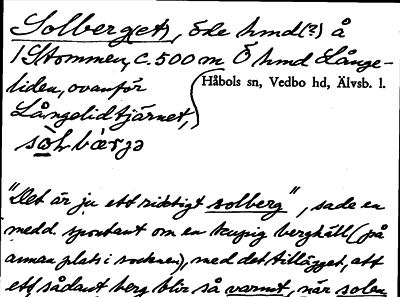 Solberg(et), öde hmd(?) å
/Stommen, c. 500 m Ö hmd Långe-
liden, ovanför
Långelidtjärnet,
Håbols sn, Vedbo hd, Älvsb. l.
"Det är ju ett riktigt solberg", sade en
medd. spontant om en kupig berghäll (på
annan plats i socknen), med det tillägget, att
ett sådant berg blir så varmt, när solen